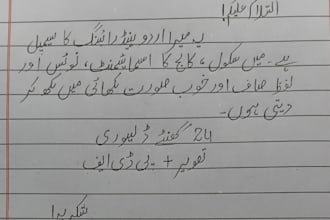 السلام علیکم!
یہ میرا اردو ہینڈ رائٹنگ کا سیمپل
ہے۔ میں سکول، کالج کا اسائنمنٹ، نوٹس اور
لفظ صاف اور خوب صورت لکھائی میں لکھ کر
دیتی ہوں۔
24 گھنٹے ڈلیوری
تصویر + پی ڈی ایف
شکریہ!